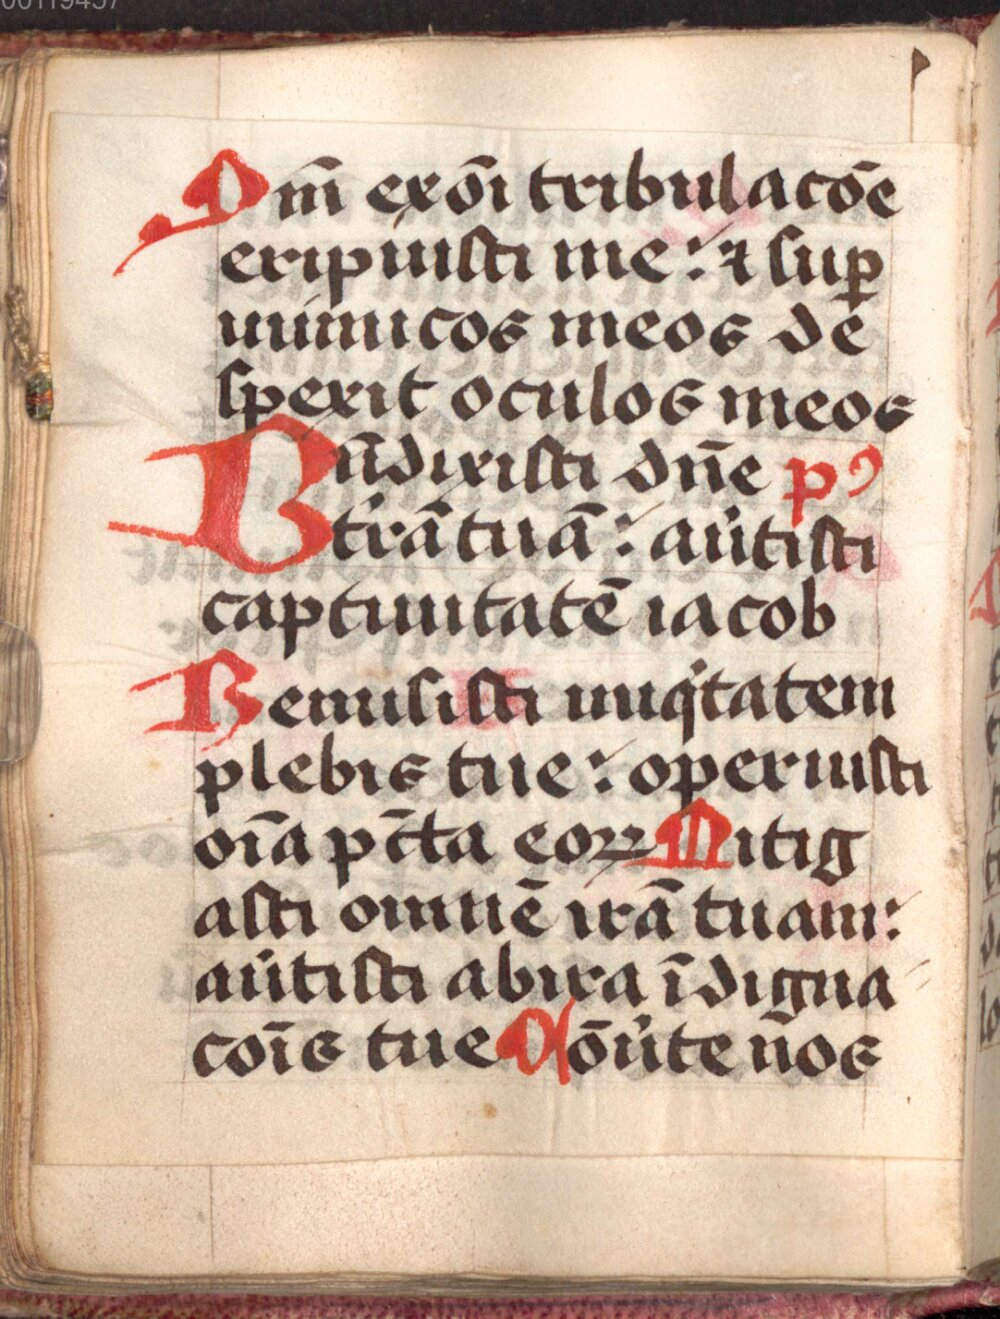 00119457
Qm̄ ex oī tribulacōe
eripuisti me: ⁊ suꝑ
inimicos meos de
spexit oculos meos
Bn̄dixisti dn̄e p̄s
trā tuā: au̾tisti
captiuitatē iacob
Remisisti iniqͥtatem
plebis tue: operuisti
oīa pc̄ta eoꝝ Mitig
asti omnē irā tuam:
au̾tisti ab ira īdigna
cōis tue Cōu̾te nos